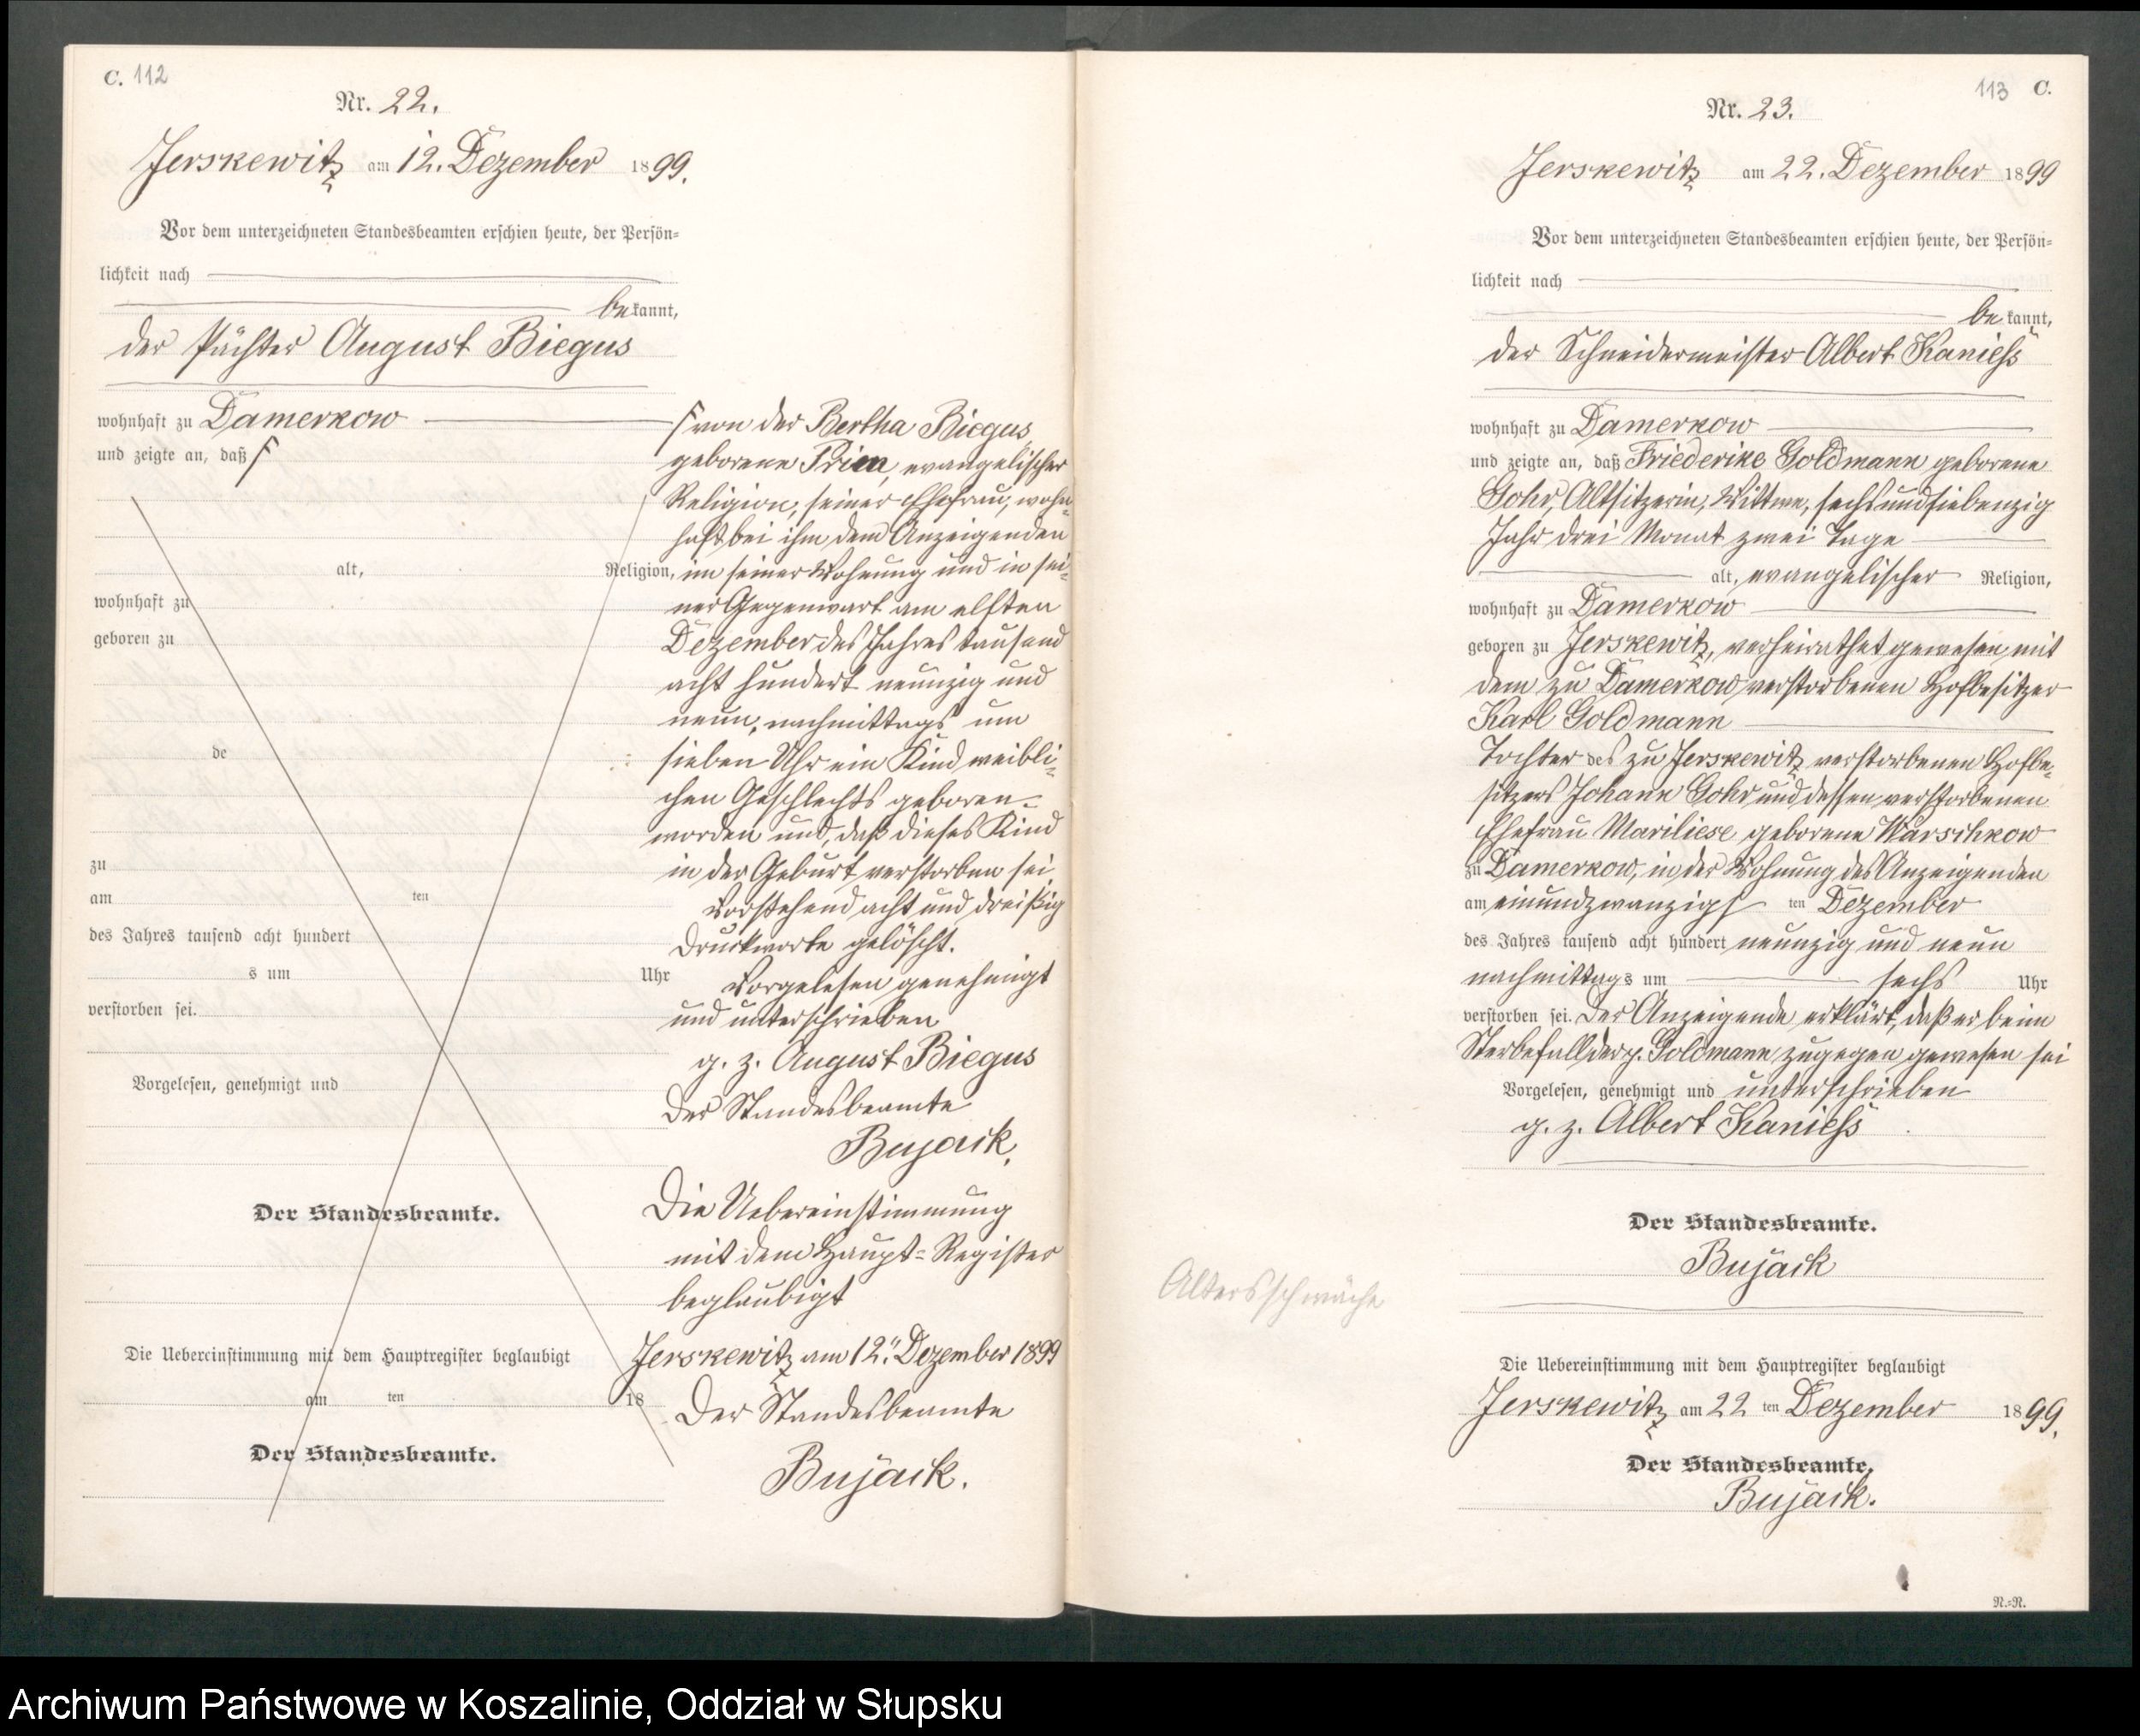 C. 112
Nr. 22.
Jerskewitz am 12. Dezember 1899.
Vor dem unterzeichneten Standesbeamten erschien heute, der Persön=
lichkeit nach
bekannt,
der Pächter August Biegus
wohnhaft zu Damerkow
und zeigte an, daß
alt, Religion,
wohnhaft zu
geboren zu
de
zu
am ten
des Jahres tausend acht hundert
s um Uhr
verstorben sei.
Vorgelesen, genehmigt und
Der Standesbeamte.
Die Uebereinstimmung mit dem Hauptregister beglaubigt
am ten 18
Der Standesbeamte.
von der Bertha Biegus
geborene Prien, evangelischer
Religion, seiner Ehefrau, wohn=
haft bei ihm dem Anzeigenden
im seiner Wohnung und in sei=
ner Gegenwart am elften
Dezember des Jahres tausend
acht hundert neunzig und
neun, nachmittags um
sieben Uhr ein Kind weibli=
chen Geschlechts geboren
worden und, daß dieses Kind
in der Geburt verstorben sei
Vorstehend acht und dreißig
Druckworte gelöscht.
Vorgelesen genehmigt
und unterschrieben
g. z. August Biegus
Der Standesbeamte
Bujack.
Die Uebereinstimmung
mit dem Haupt=Register
beglaubigt
Jerskewitz am 12. Dezember 1899
Der Standesbeamte
Bujack.
113 C.
Nr. 23.
Jerskewitz am 22. Dezember 1899
Vor dem unterzeichneten Standesbeamten erschien heute, der Persön=
lichkeit nach
bekannt,
der Schneidermeister Albert Kaniess
wohnhaft zu Damerkow
und zeigte an, daß Friederike Goldmann geborene
Gohr, Altsitzerin, Wittwe, sechsundsiebenzig
Jahr drei Monat zwei Tage
alt, evangelischer Religion,
wohnhaft zu Damerkow
geboren zu Jerskewitz, verheirathet gewesen mit
dem zu Damerkow verstorbenen Hofbesitzer
Karl Goldmann
Tochter des zu Jerskewitz verstorbenen Hofbe=
sitzers Johann Gohr und dessen verstorbenen
Ehefrau Mariliese geborene Warschkow
zu Damerkow, in der Wohnung des Anzeigenden
am einundzwanzigs ten Dezember
des Jahres tausend acht hundert neunzig und neun
nachmittags um sechs Uhr
verstorben sei. Der Anzeigende erklärt, daß er beim
Sterbefall der p. Goldmann zugegen gewesen sei
Vorgelesen, genehmigt und unterschrieben
g. z. Albert Kaniess
Der Standesbeamte.
Bujack
Altersschwäche
Die Uebereinstimmung mit dem Hauptregister beglaubigt
Jerskewitz am 22 ten Dezember 1899.
Der Standesbeamte.
Bujack.
N.=N.
Archiwum Państwowe w Koszalinie, Oddział w Słupsku